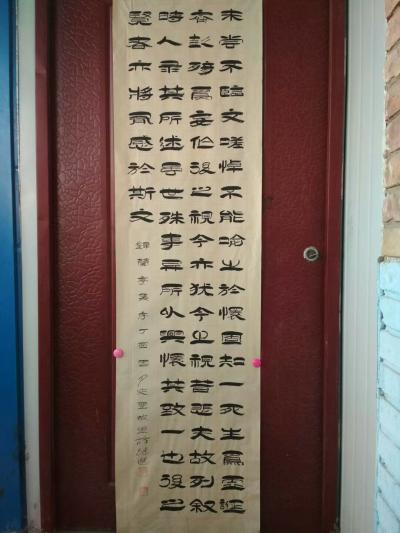 未嘗不臨文嗟悼不能喻之於懷固知一死生爲虛誕
齊彭殤爲妄作後之視今亦猶今之視昔悲夫故列敘
時人录其所述雖世殊事異所以興懷其致一也後之
覽者亦將有感於斯文
錄蘭亭集序丁酉